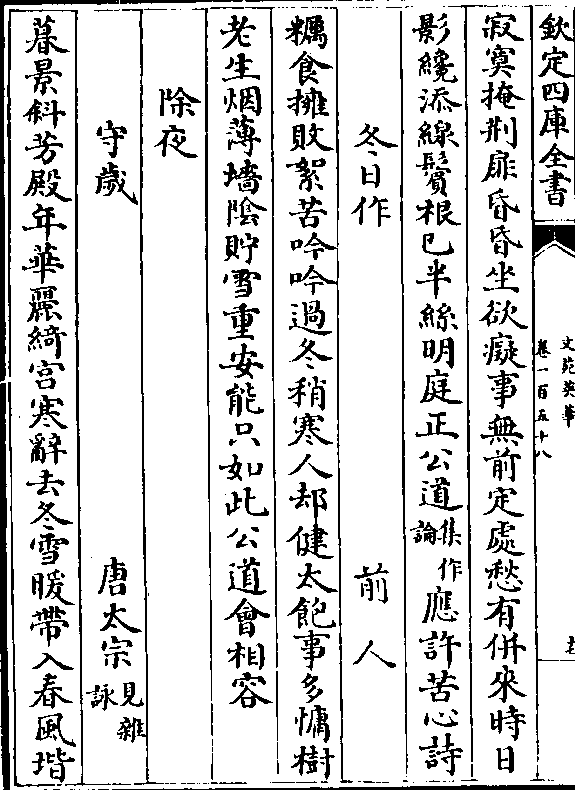 欽定四庫全書
文苑英華
卷一百五十八
寂寞掩荆扉昏昏坐欲癡事無前定處愁有併來時日
影纔添線鬢根已半絲明庭正公道集作論應許苦心詩
冬日作 前人
糲食擁敗絮苦吟吟過冬稍寒人却健太飽事多慵樹
老生烟薄墻陰貯雪重安能只如此公道會相容
除夜
守歲 唐太宗見雜詠
暮景斜芳殿年華麗綺宮寒辭去冬雪暖帶入春風堦